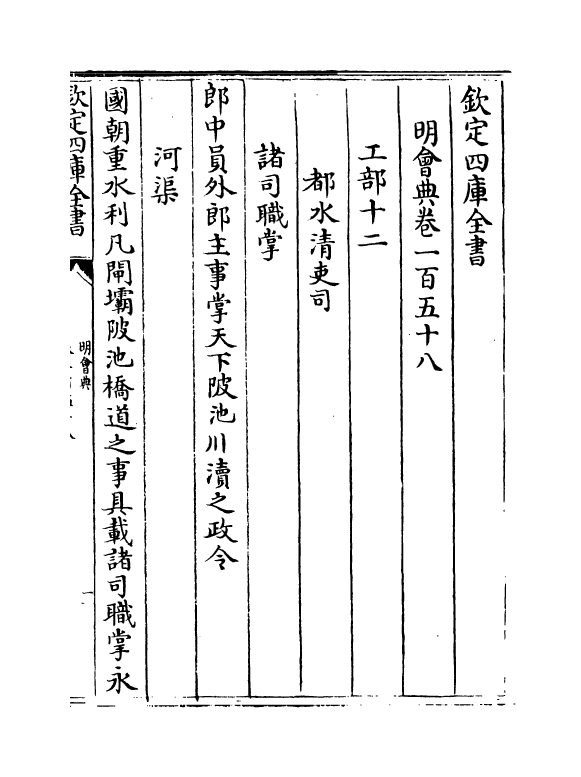 欽定四庫全書
明會典卷一百五十八
工部十二
都水清吏司
諸司職掌
郎中員外郎主事掌天下陂池川瀆之政令
河渠
國朝重水利凡閘壩陂池橋道之事具載諸司職掌永
欽定四庫全書
明會典